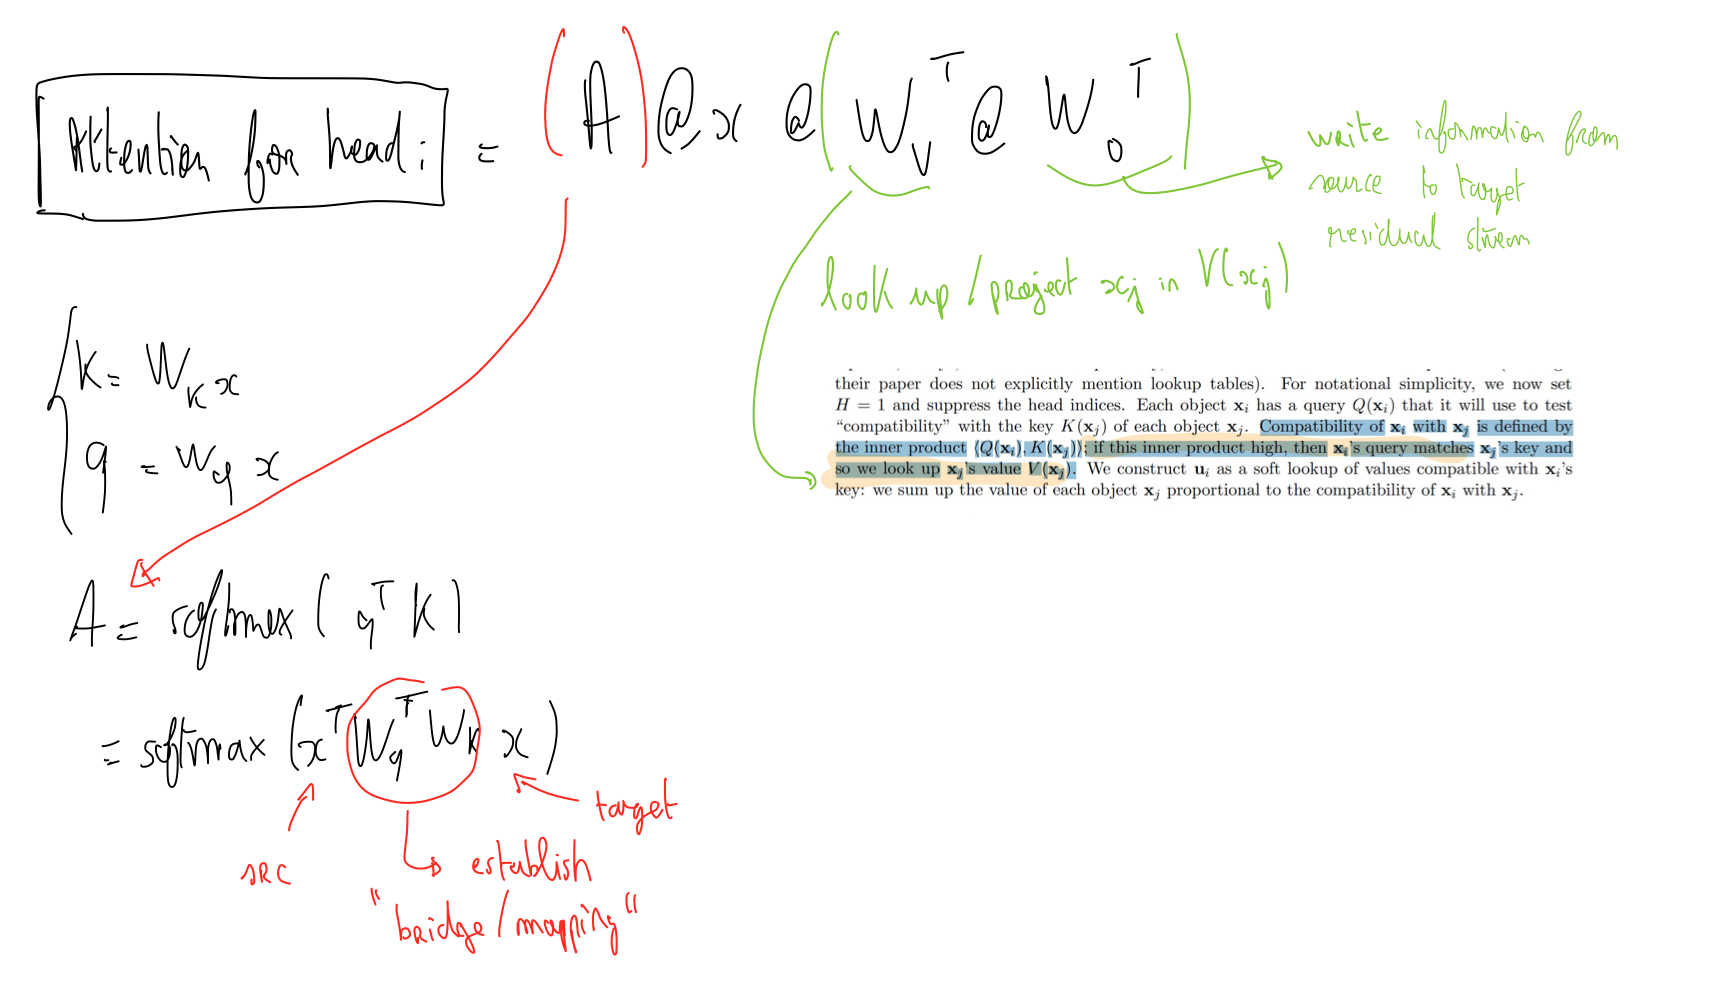 Attention for head i = (A) @ x @ (W_V^T @ W_O^T)
write information from
source to target
residual stream
look up / project x_j in V(x_j)
k = W_K x
q = W_q x
their paper does not explicitly mention lookup tables). For notational simplicity, we now set
H = 1 and suppress the head indices. Each object x_i has a query Q(x_i) that it will use to test
“compatibility” with the key K(x_j) of each object x_j. Compatibility of x_i with x_j is defined by
the inner product ⟨Q(x_i), K(x_j)⟩; if this inner product high, then x_i’s query matches x_j’s key and
so we look up x_j’s value V(x_j). We construct u_i as a soft lookup of values compatible with x_i’s
key: we sum up the value of each object x_j proportional to the compatibility of x_i with x_j.
A = softmax ( q^T K )
= softmax ( x^T W_q^T W_K x )
target
src
establish
"bridge / mapping"